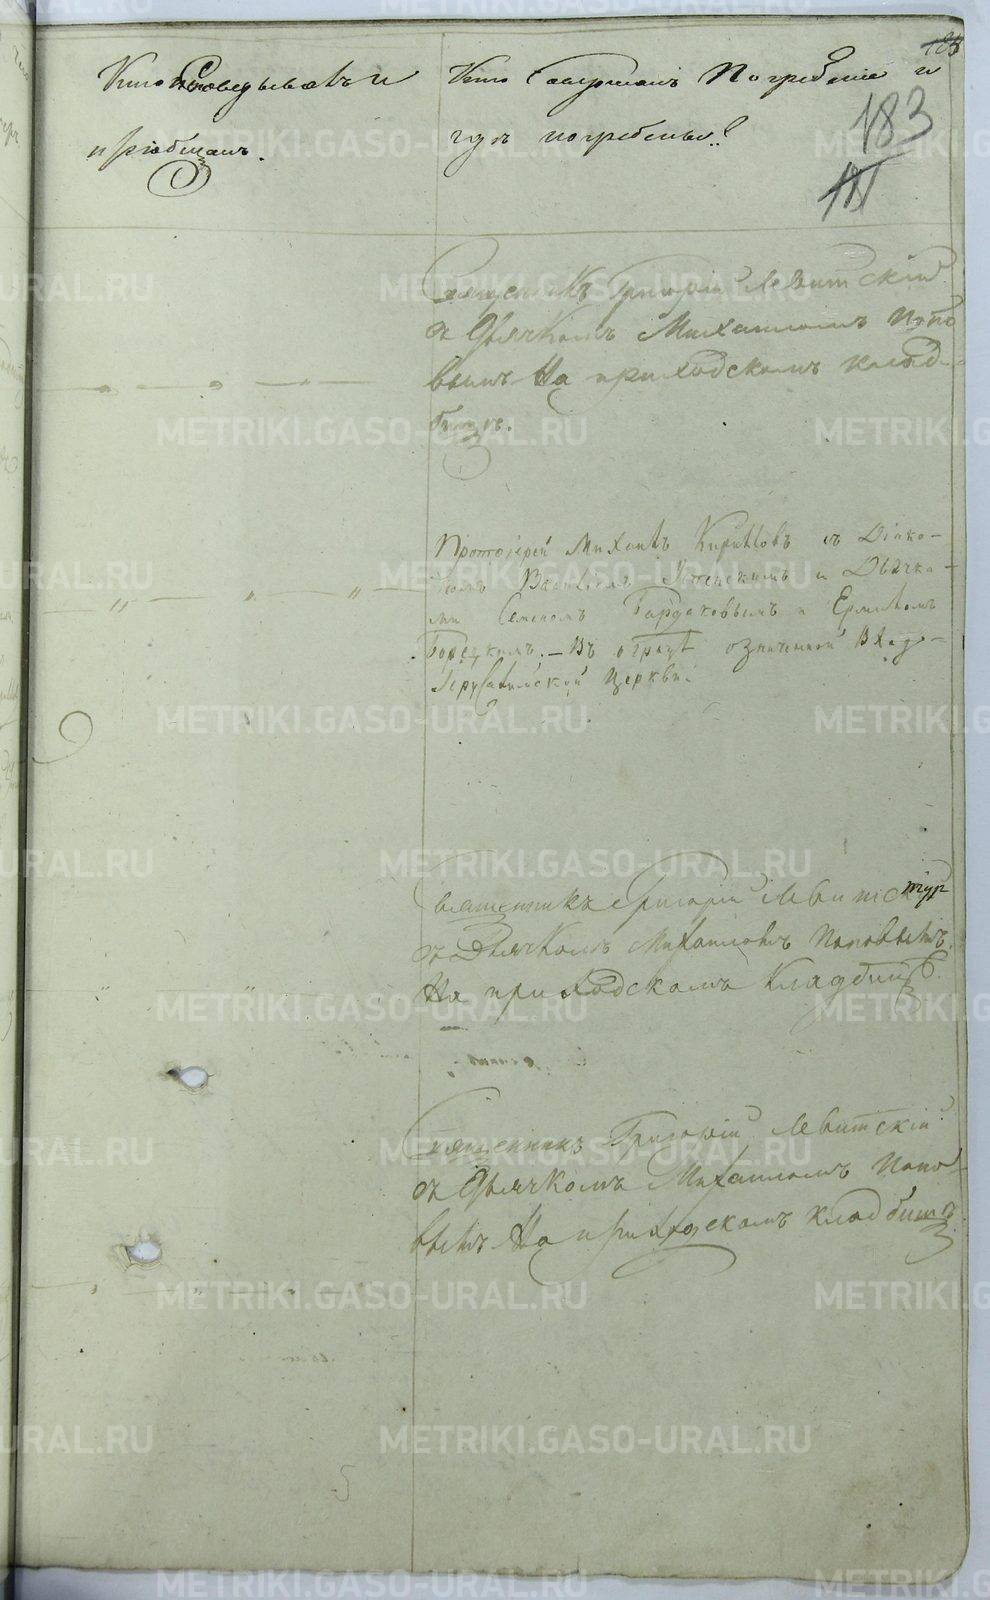 Кто исповедывалъ и
пріобщалъ.
Кто совершалъ Погребеніе и
гдѣ погребены?
183
Священникъ Григорій Левитскій
съ Дьячкомъ Михаиломъ Попо
вымъ На приходскомъ клад-
бищѣ.
Протоіерей Михаилъ Кирилловъ съ Діако-
номъ Василіемъ Успенскимъ и Дьячка-
ми Семеномъ Бардаковымъ и Ермиломъ
Борецкимъ. – Въ оградѣ означенной Входо-
Іерусалимской Церкви.
Священникъ Григорій Левитск
съ Дьячкомъ Михаиломъ Поповымъ.
На приходскомъ Кладбищѣ.
Священникъ Григорій Левитскій
съ Дьячкомъ Михаиломъ Попо-
вымъ На приходскомъ кладбищѣ
METRIKI.GASO-URAL.RU